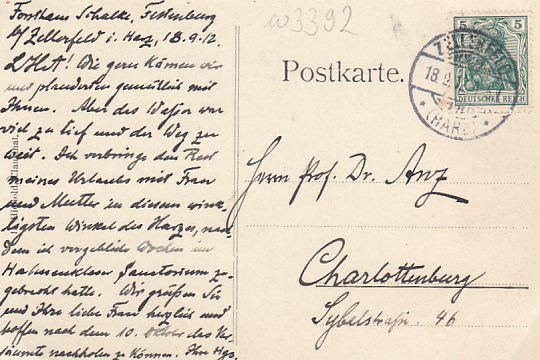 Forsthaus Schalke, Festenburg
b/Zellerfeld i. Harz, 18.9.12.
L. Hct! Wie gern kämen wir
und plauderten gemütlich mit
Ihnen. Aber das Wasser war
viel zu tief und der Weg zu
weit. Ich verbringe den Rest
meines Urlaubs mit Frau
und Mutter zu diesem wink-
ligsten Winkel des Harzes, nach
dem ich vergeblich Wochen im
Hahnenkleeer Sanatorium zu-
gebracht hatte. Wir grüßen Sie
und Ihre liebe Frau herzlich und
hoffen nach dem 10. das Ver-
säumte nachholen zu können. Ihr Hgs.
w3392
Postkarte.
5 5
DEUTSCHES REICH
ZELLERFELD
18.9.
(HARZ)
Herrn Prof. Dr. Anz
Charlottenburg
Sybelstraße 46